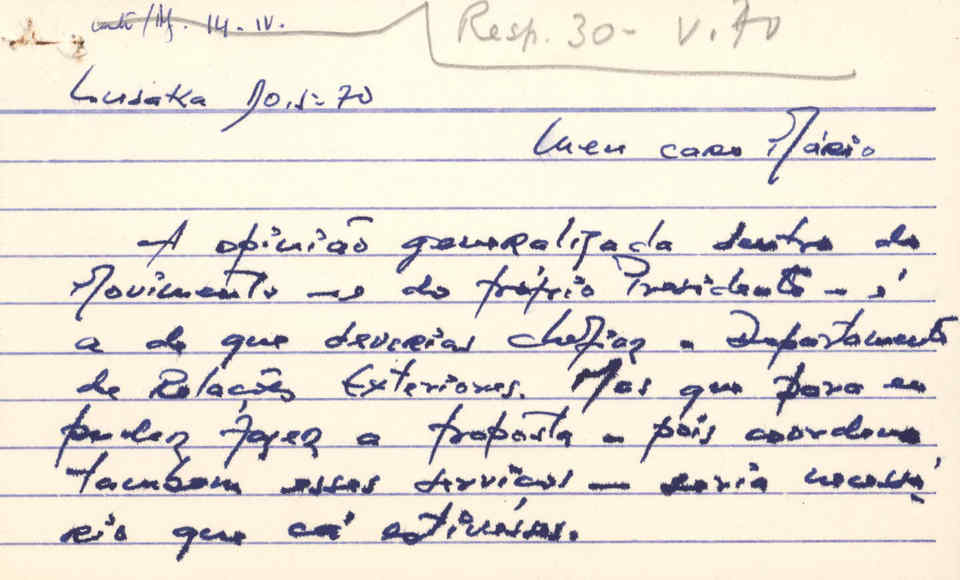 14.IV.
Resp. 30-V.70
Lusaka 10.5-70
Meu caro Mário
A opinião generalizada dentro do
Movimento - e do próprio Presidente - é
a de que deverias chefiar o Departamento
de Relações Exteriores. Mas que para eu
puder fazer a proposta - pois coordeno
também esses serviços - seria necessá
rio que cá estivésses.